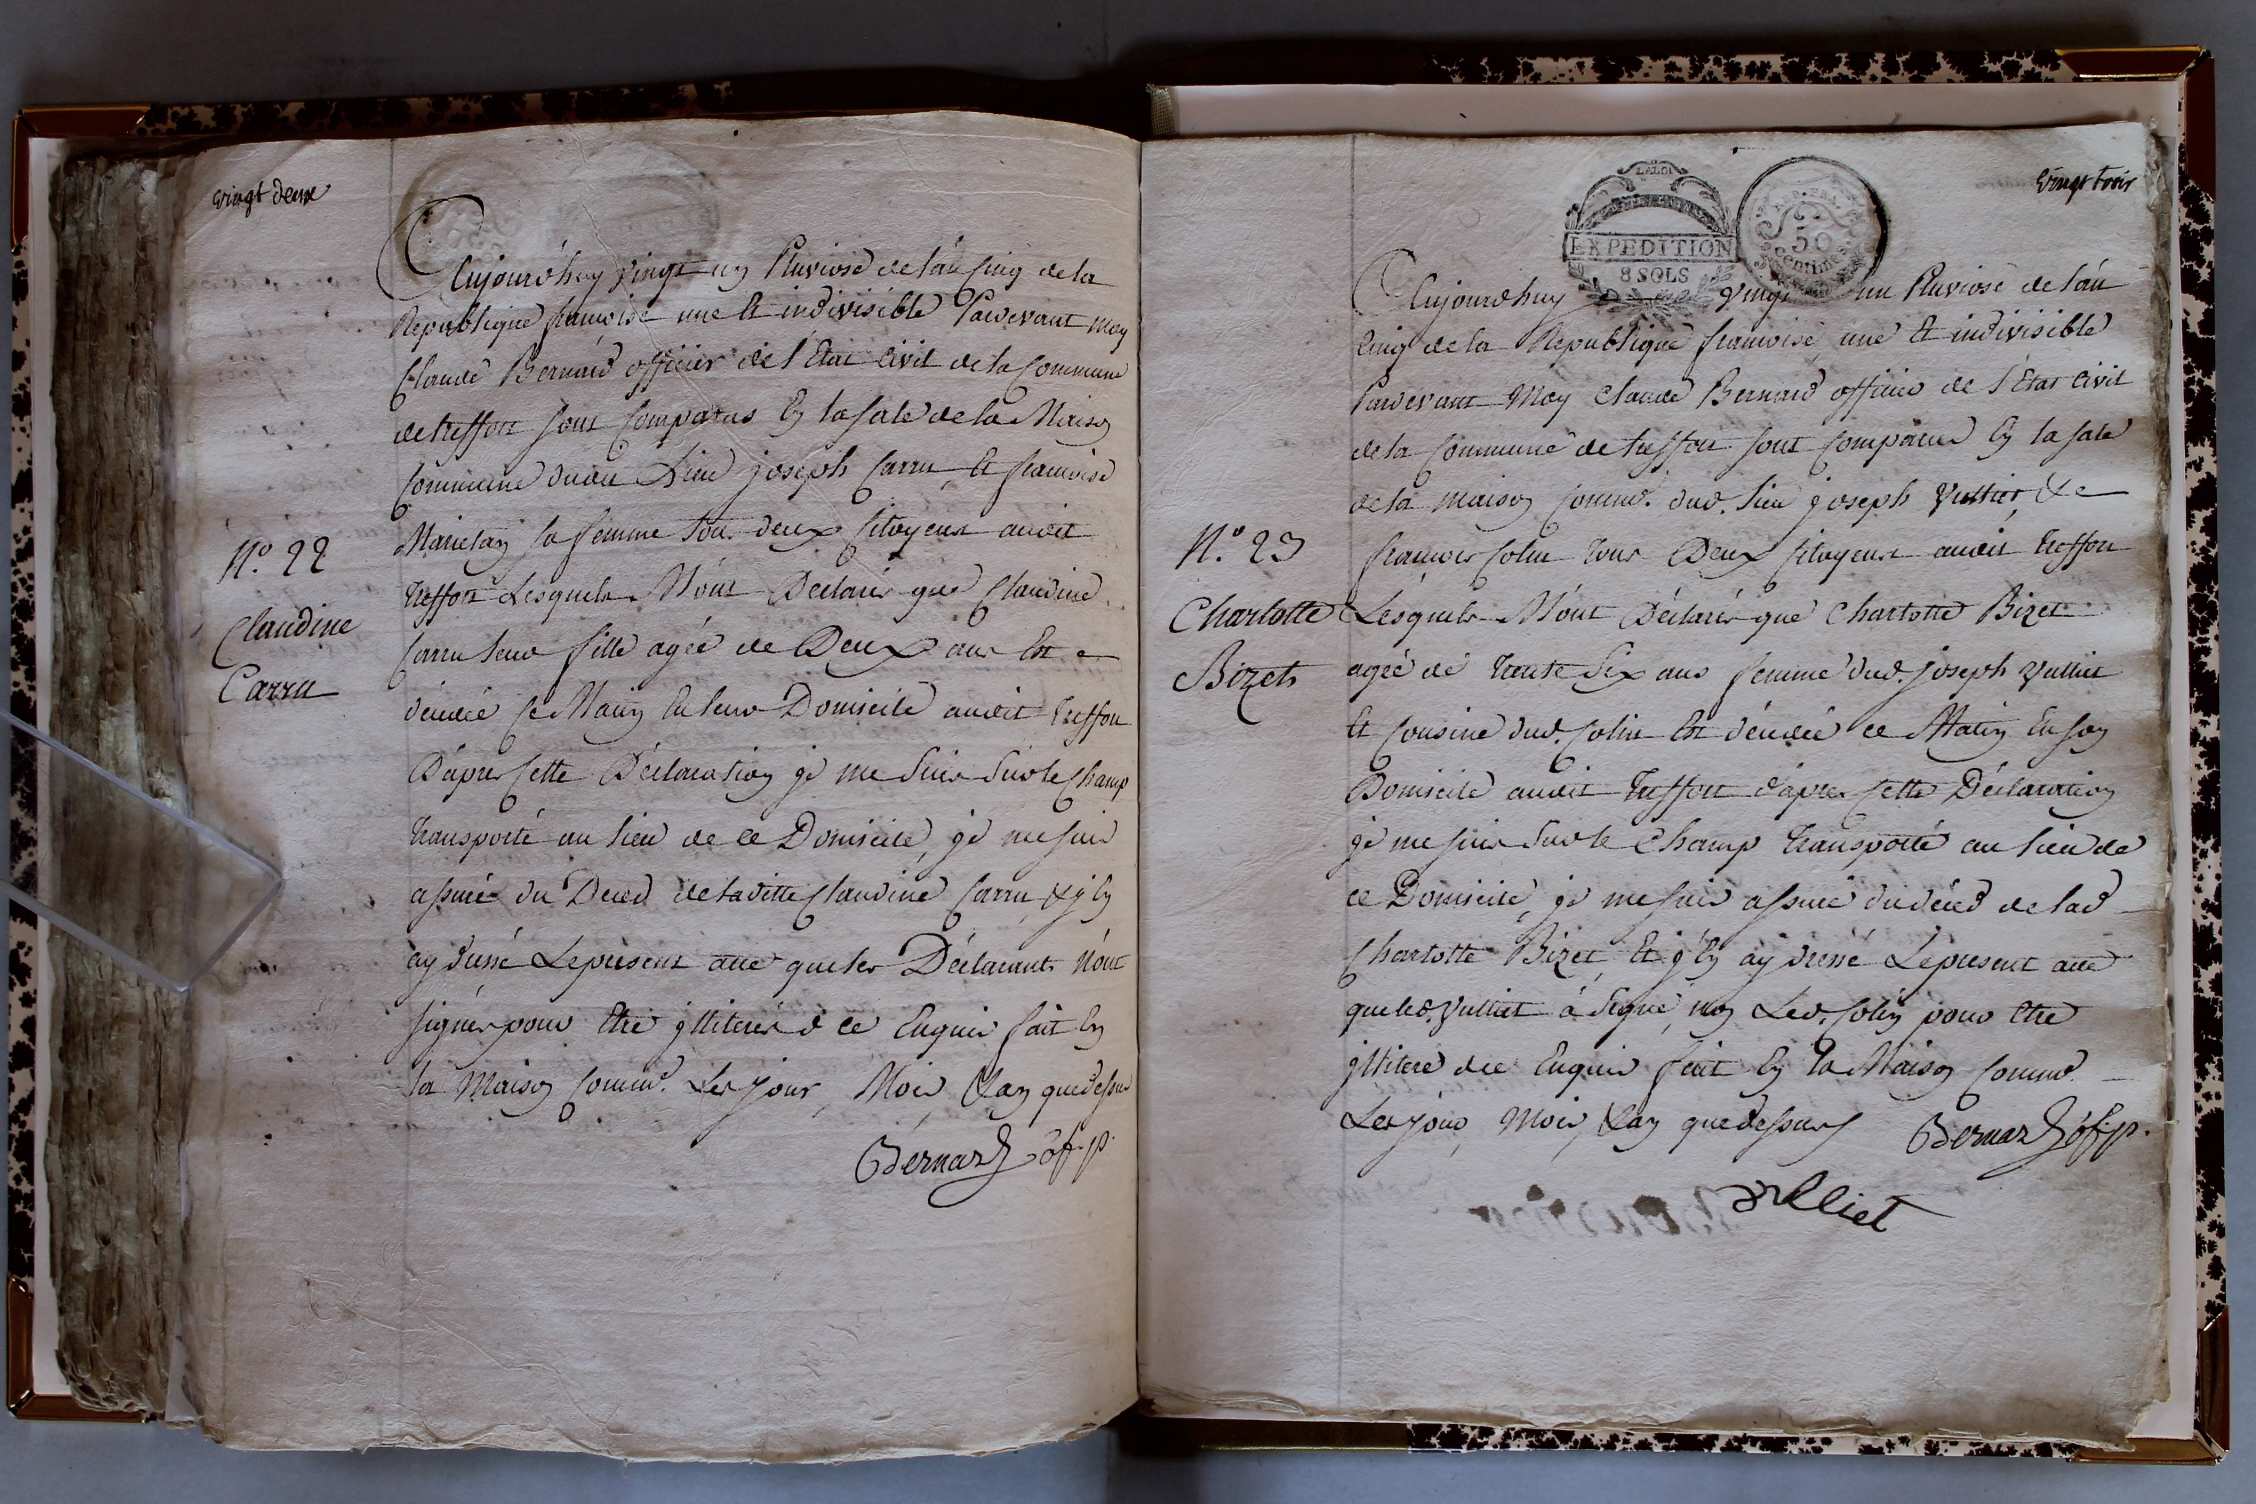 vingt deux
Aujourd'huy vingt un Pluviose de l'an Cinq de la
Republique françoise une Et indivisible Pardevant moy
Claude Bernard officier de l'Etat Civil de la Commune
de treffort sont Comparus En la sale de la Maison
Commune dudit Lieu joseph Carru, Et françoise
sa femme tous deux Citoyens audit
N.º 22
Treffort Lesquels M'ont Déclarés que Claudine
Claudine
Carru leur fille agée de Deux ans Est
Carru
décédé Ce Matin En leur Domicile audit Treffort
D'apres Cette Déclaration je me suis sur le Champ
Transporté au lieu de ce Domicile, je me suis
assuré du Deced de laditte Claudine Carru, & j'En
ay dressé Le present acte que les Déclarants N'ont
signés pour Etre jlliterés de ce Enquis fait En
la Maison Comm.e Les jour, Mois, & an que dessus
Bernard off. p.
vingt trois
LA LOI
EXPEDITION
8 SOLS
REP. FRA.
50
Centimes
Aujourdhuy vingt un Pluviose de l'an
Cinq de la Republique françoise une Et indivisible
Pardevant Moy Claude Bernard officier de l'Etat Civil
de la Commune de treffort sont Comparus En la sale
de la maison Comm.e dud. lieu joseph Vulliet, &
N.º 23
françois Colin Tous Deux Citoyens audit Treffort
Charlotte
Lesquels M'ont Déclarés que Charlotte Bizet
Bizet
agée de Trente Six ans femme dud. joseph Vulliet
Et Cousine dud. Colin Est décédé ce Matin En son
Domicile audit Treffort d'apres Cette Déclaration
je me suis sur le Champ Transporté au lieu de
ce Domicile, je me suis assuré du déced de lad
Charlotte Bizet, Et j'En ay dressé Le present acte
que led. Vulliet à signé, non Led. Colin pour Etre
jlliteré de ce Enquis fait En la Maison Comm.e
Les jour, Mois, & an que dessus Bernard off. p.
vulliet